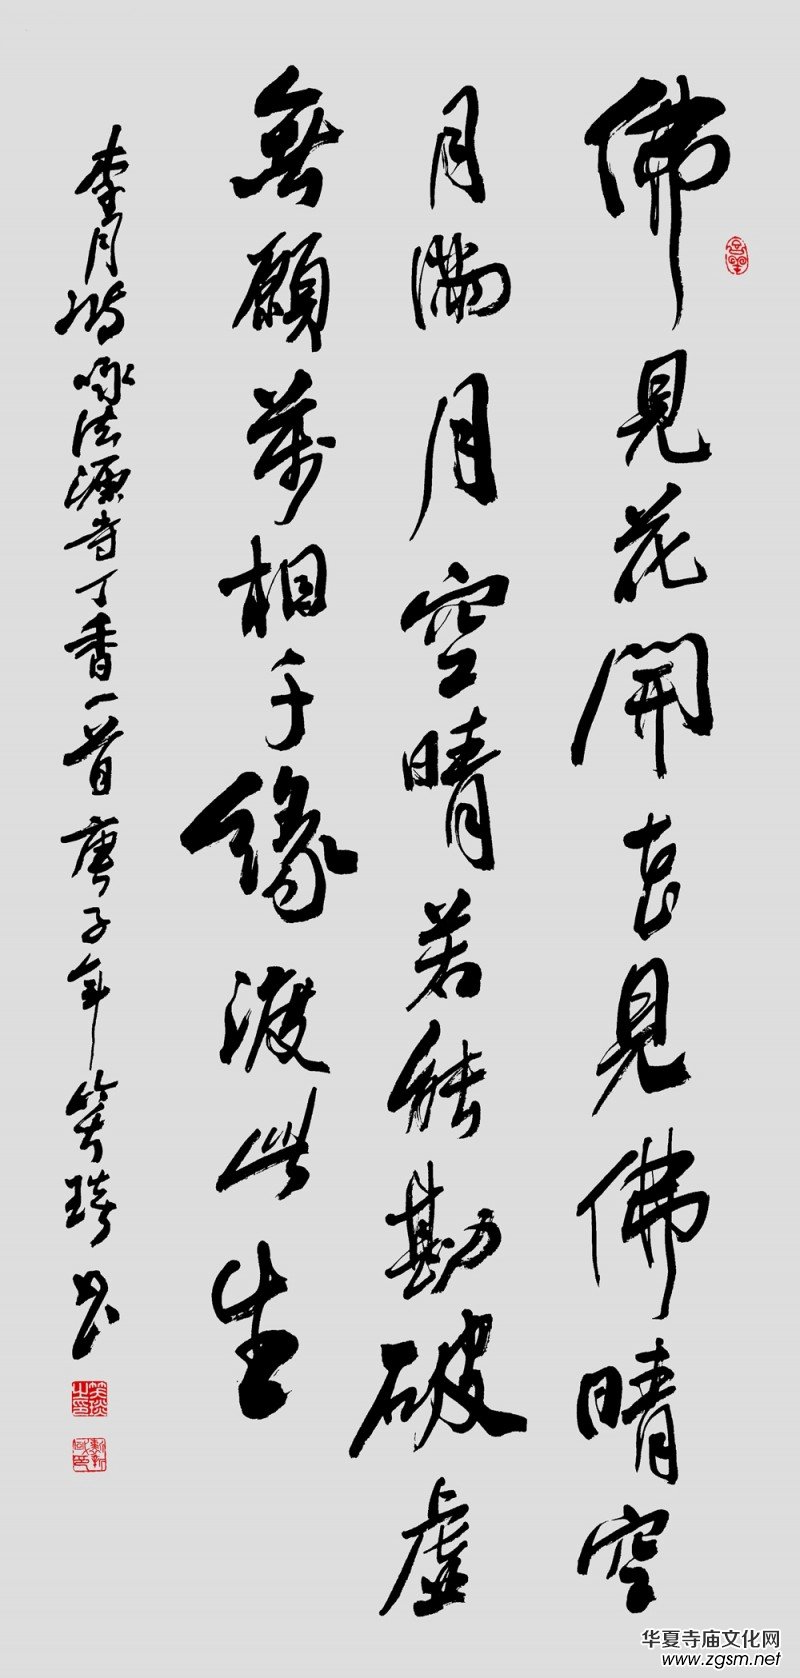 佛見花開花見佛晴空
月滿月空晴若能勘破虛
無願萬相千緣渡此生
李月 咏法源寺丁香一首庚子年笑 書
华夏寺庙文化网
www.zgsm.net